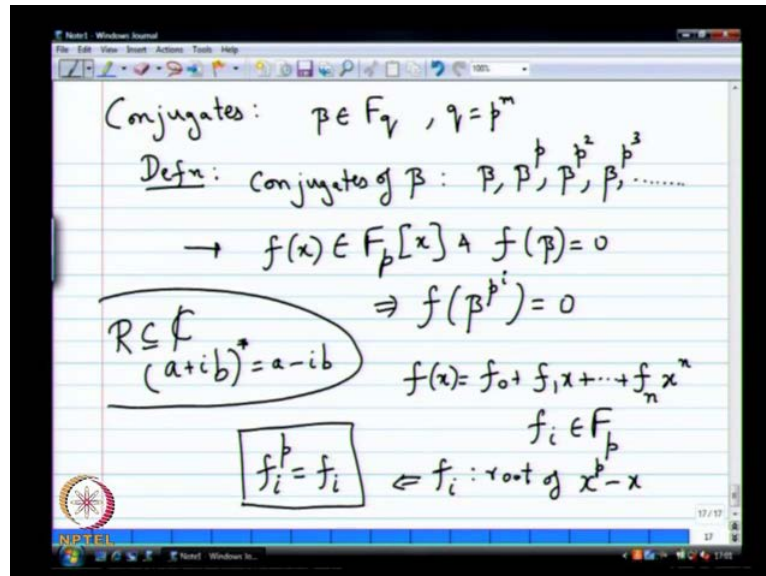 Note1 - Windows Journal
File Edit View Insert Actions Tools Help
100%
Conjugates: β ∈ F_q , q = p^m
Defn: Conjugates of β : β, β^p, β^{p^2}, β^{p^3}, .......
→ f(x) ∈ F_p[x] & f(β) = 0
⇒ f(β^{p^i}) = 0
R ⊆ ℂ
(a+ib)^* = a-ib
f(x) = f_0 + f_1 x + ... + f_n x^n
f_i ∈ F_p
f_i^p = f_i ⇐ f_i : root of x^p - x
17 / 17
17
NPTEL
Note1 - Windows Jo...
17:01